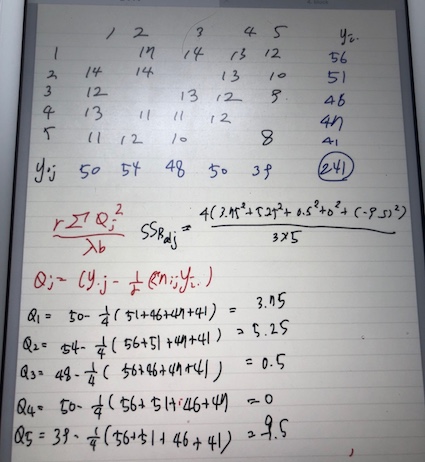 1 2 3 4 5 yi.
1 17 14 13 12 56
2 14 14 13 10 51
3 12 13 12 9 46
4 13 11 11 12 47
5 11 12 10 8 41
y.j 50 54 48 50 39 241
rΣQj² / λb SSRadj = 4(3.75²+5.25²+0.5²+0²+(-9.5)²) / 3×5
Qj = (y.j - 1/r Σnijyi.)
Q1 = 50 - 1/4 (51+46+47+41) = 3.75
Q2 = 54 - 1/4 (56+51+47+41) = 5.25
Q3 = 48 - 1/4 ( 56+46+47+41) = 0.5
Q4 = 50 - 1/4 (56+51+46+47 = 0
Q5 = 39 - 1/4 (56+51+46+41) = 9.5